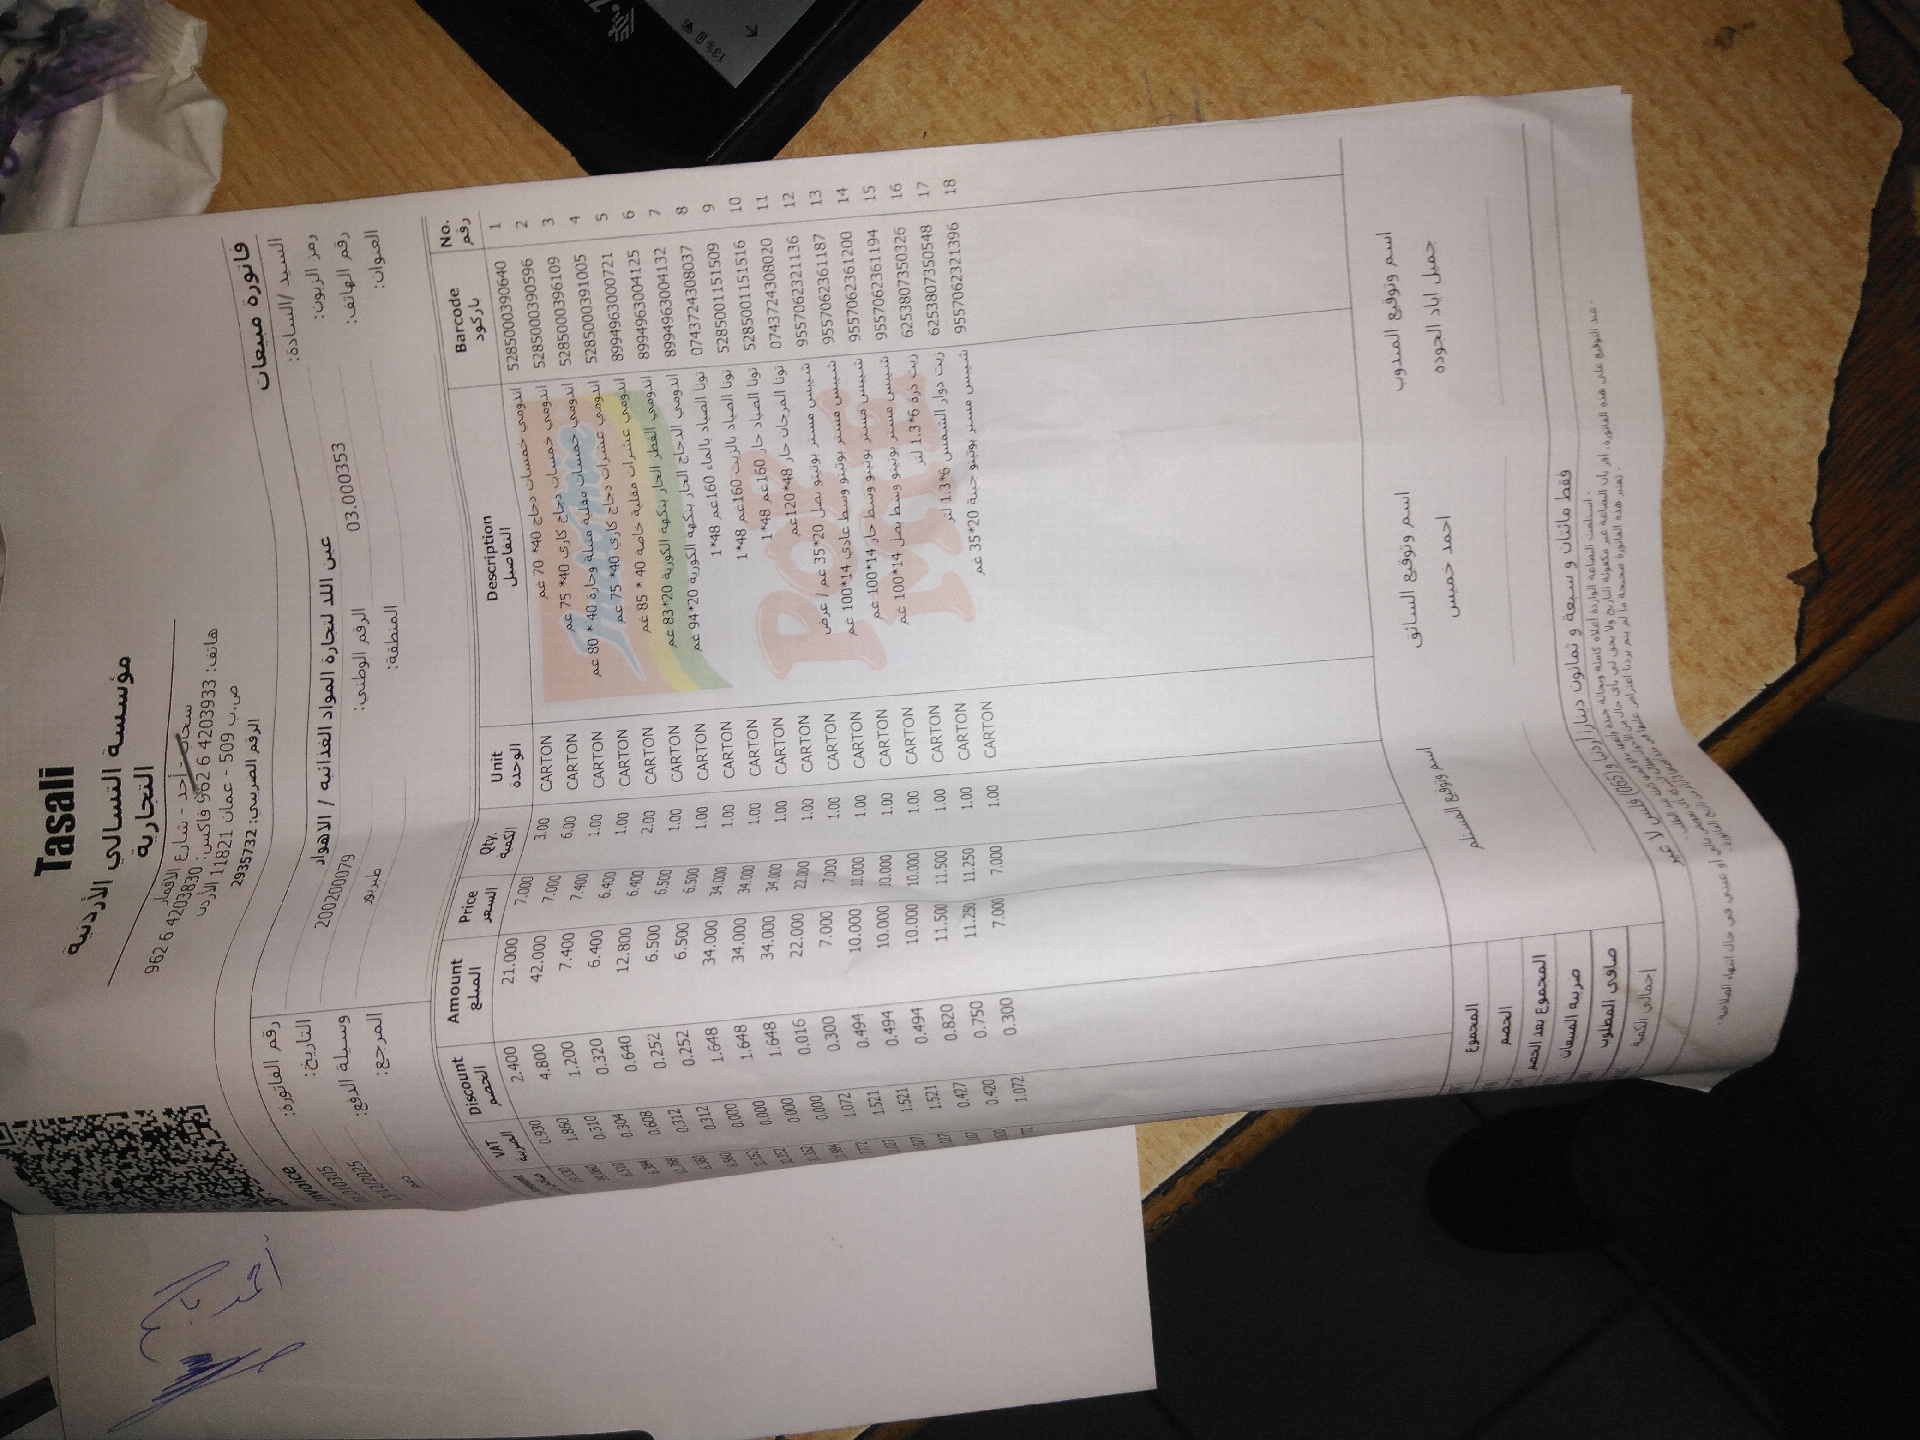 Tasali
مؤسسة التسالي الأردنية
التجارية
سحاب - أحد - شارع الأقمار
هاتف: 4203933 6 962 فاكس: 4203830 6 962
ص.ب 509 - عمان 11821 الأردن
الرقم الضريبي: 2935732
فاتورة مبيعات
INVOICE
رقم الفاتورة:
السيد /السادة:
عين اللد لتجارة المواد الغذائيه / الاهوار
التاريخ:
رمز الزبون: 03.000353
الرقم الوطني: 200200079
وسيلة الدفع:
رقم الهاتف:
المنطقة: طبربور
المرجع:
العنوان:
No. Barcode Description Unit Qty. Price Amount Discount VAT
رقم باركود التفاصيل الوحدة الكمية السعر المبلغ الخصم الضريبة
1 5285000390640 اندومي خمسات دجاج 40* 70 غم CARTON 3.00 7.000 21.000 2.400 0.930
2 5285000390596 اندومي خمسات دجاج كاري 40* 75 غم CARTON 6.00 7.000 42.000 4.800 1.860
3 5285000396109 اندومي خمسات مقلية متبلة وحارة 40 * 80 غم CARTON 1.00 7.400 7.400 1.200 0.310
4 5285000391005 اندومي عشرات دجاج كاري 40* 75 غم CARTON 1.00 6.400 6.400 0.320 0.304
5 8994963000721 اندومي عشرات مقلية خاصة 40 * 85 غم CARTON 2.00 6.400 12.800 0.640 0.608
6 8994963004125 اندومي الفطر الحار بنكهة الكورية 20*83 غم CARTON 1.00 6.500 6.500 0.252 0.312
7 8994963004132 اندومي الدجاج الحار بنكهة الكورية 20*94 غم CARTON 1.00 6.500 6.500 0.252 0.312
8 074372430803​7 تونا الصياد بالماء 160غم 48*1 CARTON 1.00 34.000 34.000 1.648 0.000
9 5285001151509 تونا الصياد بالزيت 160غم 48*1 CARTON 1.00 34.000 34.000 1.648 0.000
10 5285001151516 تونا الصياد حار 160غم 48*1 CARTON 1.00 34.000 34.000 1.648 0.000
11 0743724308020 تونا المرجان حار 48*120غم CARTON 1.00 22.000 22.000 0.016 0.000
12 9557062321136 شيبس مستر بوتيتو بصل 20*35 غم / عرض CARTON 1.00 7.000 7.000 0.300 1.072
13 9557062361187 شيبس مستر بوتيتو وسط عادي 14*100 غم CARTON 1.00 10.000 10.000 0.494 1.521
14 9557062361200 شيبس مستر بوتيتو وسط حار 14*100 غم CARTON 1.00 10.000 10.000 0.494 1.521
15 9557062361194 شيبس مستر بوتيتو وسط بصل 14*100 غم CARTON 1.00 10.000 10.000 0.494 1.521
16 6253807350326 زيت ذرة 6*1.3 لتر CARTON 1.00 11.500 11.500 0.820 0.427
17 6253807350548 زيت دوار الشمس 6*1.3 لتر CARTON 1.00 11.250 11.250 0.750 0.420
18 9557062321396 شيبس مستر بوتيتو جبنة 20*35 غم CARTON 1.00 7.000 7.000 0.300 1.072
Indomie
POP MIE
اسم وتوقيع المندوب
جميل اياد الجوده
اسم وتوقيع السائق
احمد خميس
اسم وتوقيع المستلم
المجموع
الخصم
المجموع بعد الخصم
ضريبة المبيعات
صافي المطلوب
إجمالي الكمية
فقط مائتان و سبعة و ثمانون دينارا اردنيا و (065) فلس لا غير